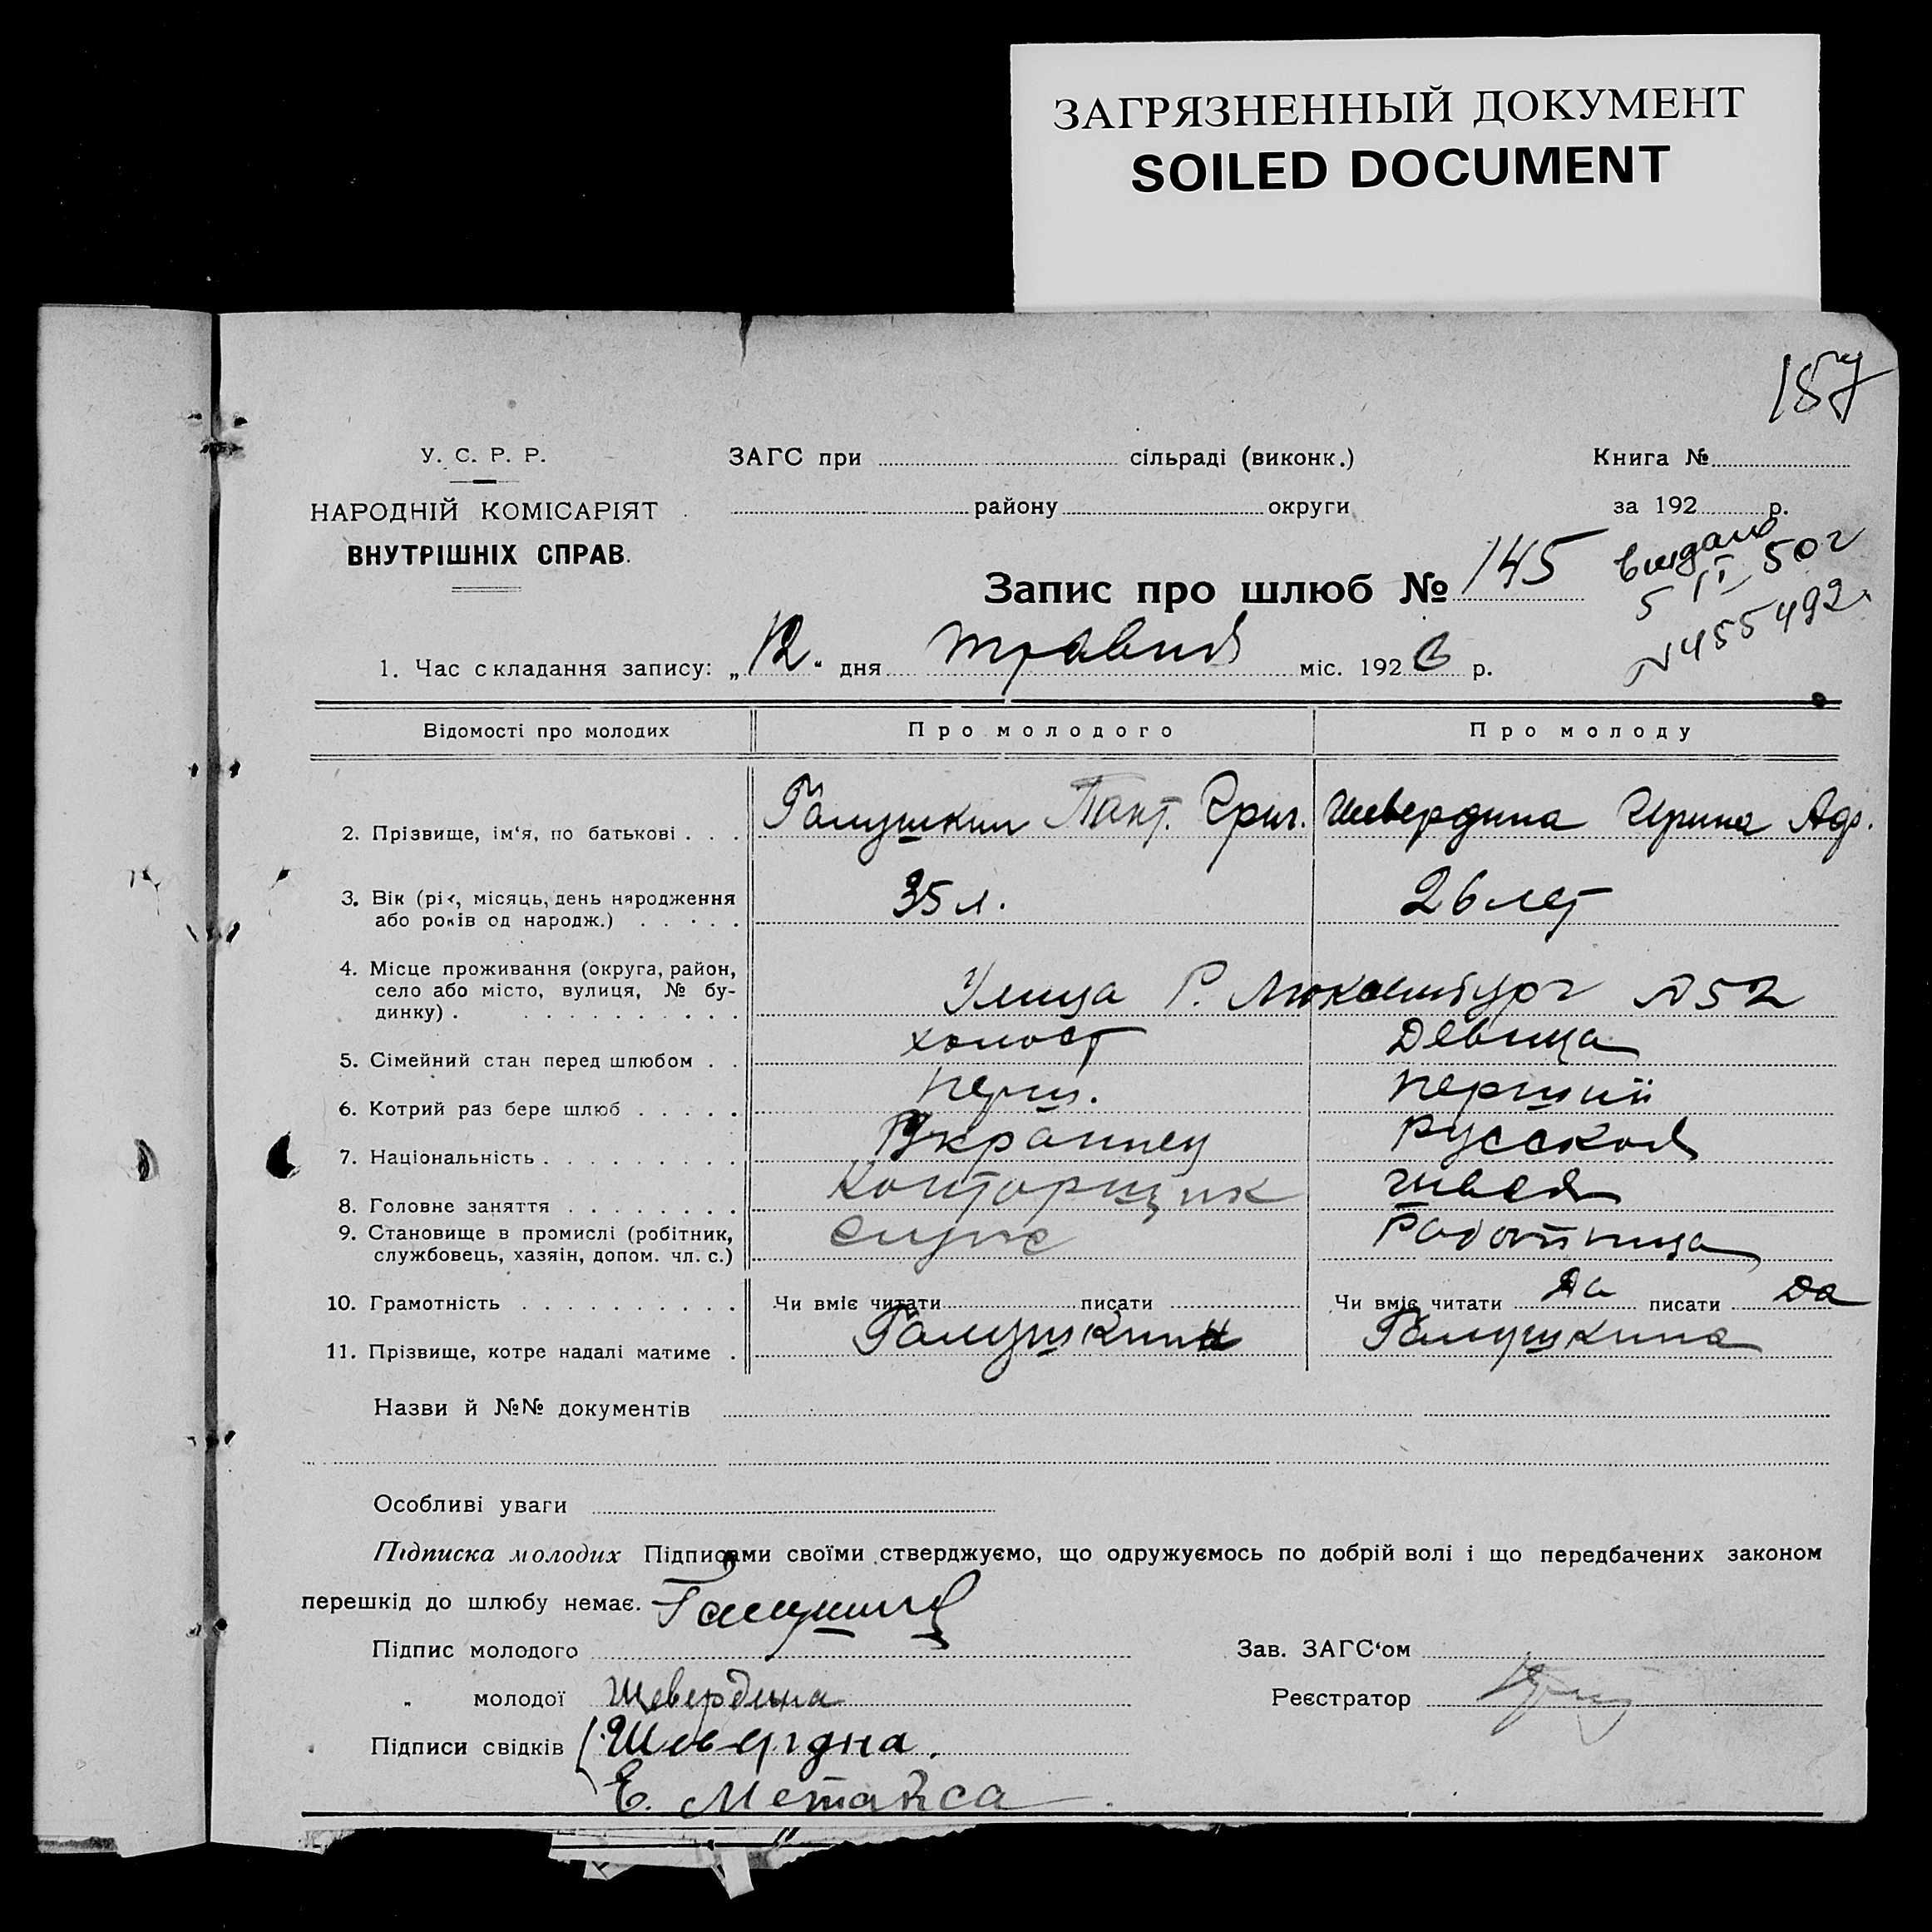 ЗАГРЯЗНЕННЫЙ ДОКУМЕНТ
SOILED DOCUMENT
187
У. С. Р. Р.
НАРОДНІЙ КОМІСАРІЯТ
ВНУТРІШНІХ СПРАВ.
ЗАГС при сільраді (виконк.)
району округи
Книга №
за 192 р.
Запис про шлюб № 145
видано
5 II 50 г
N 455492
1. Час складання запису: „12." дня травня міс. 192 р.
Відомості про молодих Про молодого Про молоду
2. Прізвище, ім'я, по батькові . . . Галушкин Пант. Григ. Шевердина Ирина Адр.
3. Вік (рік, місяць, день народження
або років од народж.) . . . . . 35 л. 26 лет
4. Місце проживання (округа, район,
село або місто, вулиця, № бу-
динку) . . . . . . . . . . . Улица Р. Люксембург № 52
5. Сімейний стан перед шлюбом . . холост Девица
6. Котрий раз бере шлюб . . . . . перш. перший
7. Національність . . . . . . . . . Украинец русская
8. Головне заняття . . . . . . . . Конторщик швея
9. Становище в промислі (робітник,
службовець, хазяін, допом. чл. с.) служ Работница
10. Грамотність . . . . . . . . . . Чи вміє читати писати Чи вміє читати Да писати Да
11. Прізвище, котре надалі матиме . Галушкин Галушкина
Назви й №№ документів
Особливі уваги
Підписка молодих Підписами своїми стверджуємо, що одружуємось по добрій волі і що передбачених законом
перешкід до шлюбу немає.
Підпис молодого Галушкин Зав. ЗАГС'ом
„ молодої Шевердина Реєстратор
Підписи свідків Шевердна.
Е. Метакса